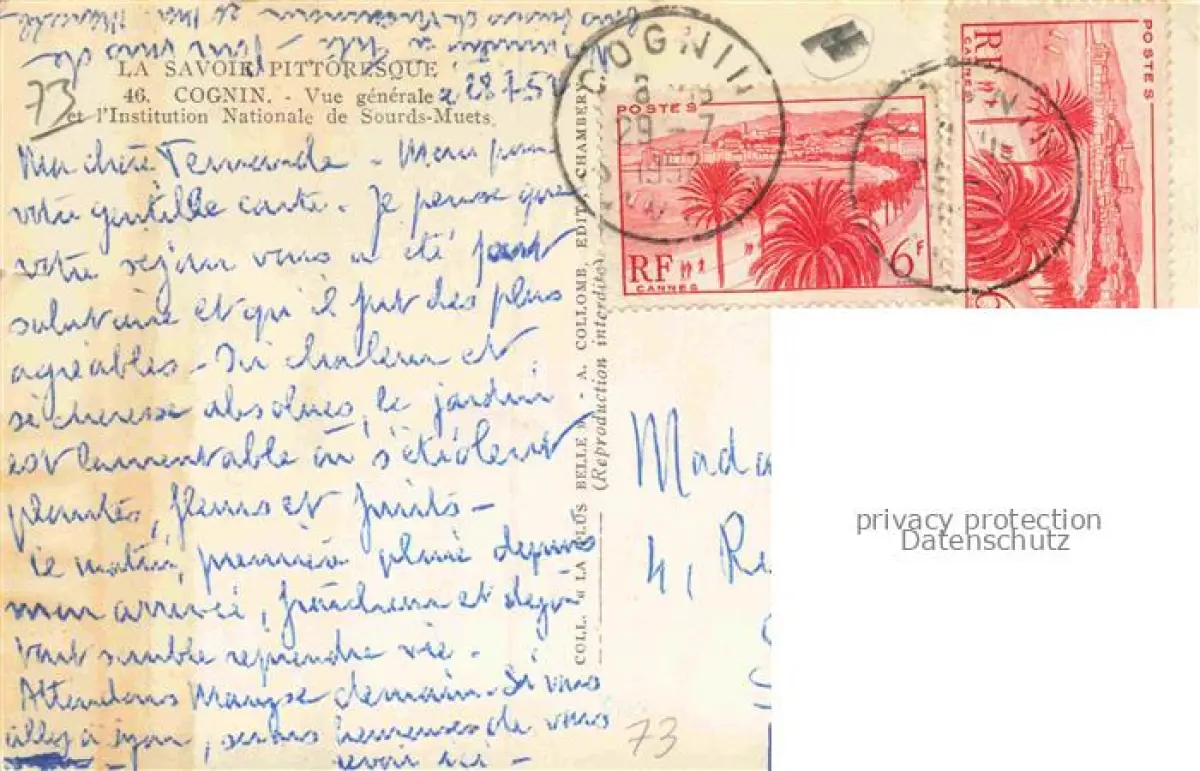 LA SAVOIE PITTORESQUE
46. COGNIN. - Vue générale
et l'Institution Nationale de Sourds-Muets
28 7 52
73
Ma chère Fernande - Merci pour
votre gentille carte. Je pense que
votre séjour vous a été fort
salutaire et qu'il fut des plus
agréables - Ici chaleur et
sécheresse absolues, le jardin
est lamentable où s'étiolent
plantes, fleurs et fruits -
Ce matin, première pluie depuis
mon arrivée, fraîcheur et déjà
tout semble reprendre vie -
Attendons Maryse demain. Si vous
allez à Lyon, serons heureuses de vous
revoir ici -
COLL. « LA PLUS BELLE » - A. COLLOMB, EDIT., CHAMBERY
(Reproduction interdite)
COGNIN
29 - 7
POSTES
RF
CANNES
6F
POSTES
RF
CANNES
Mada
4, R
73
privacy protection
Datenschutz